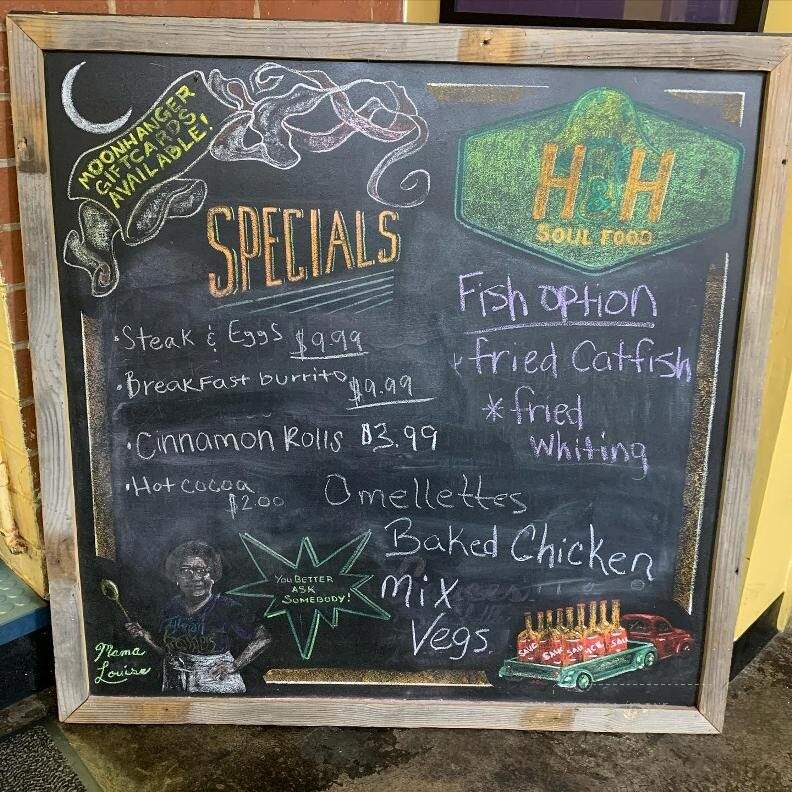 MOONHANGER
GIFTCARDS
AVAILABLE!
SPECIALS
• Steak & Eggs $9.99
• Breakfast burrito $9.99
• Cinnamon Rolls $3.99
• Hot cocoa
$2.00
H&H
SOUL FOOD
Fish option
* fried Catfish
* fried
whiting
Omellettes
Baked Chicken
Mix
Vegs.
YOU BETTER
ASK
SOMEBODY!
Mama
Louise
SAUCE